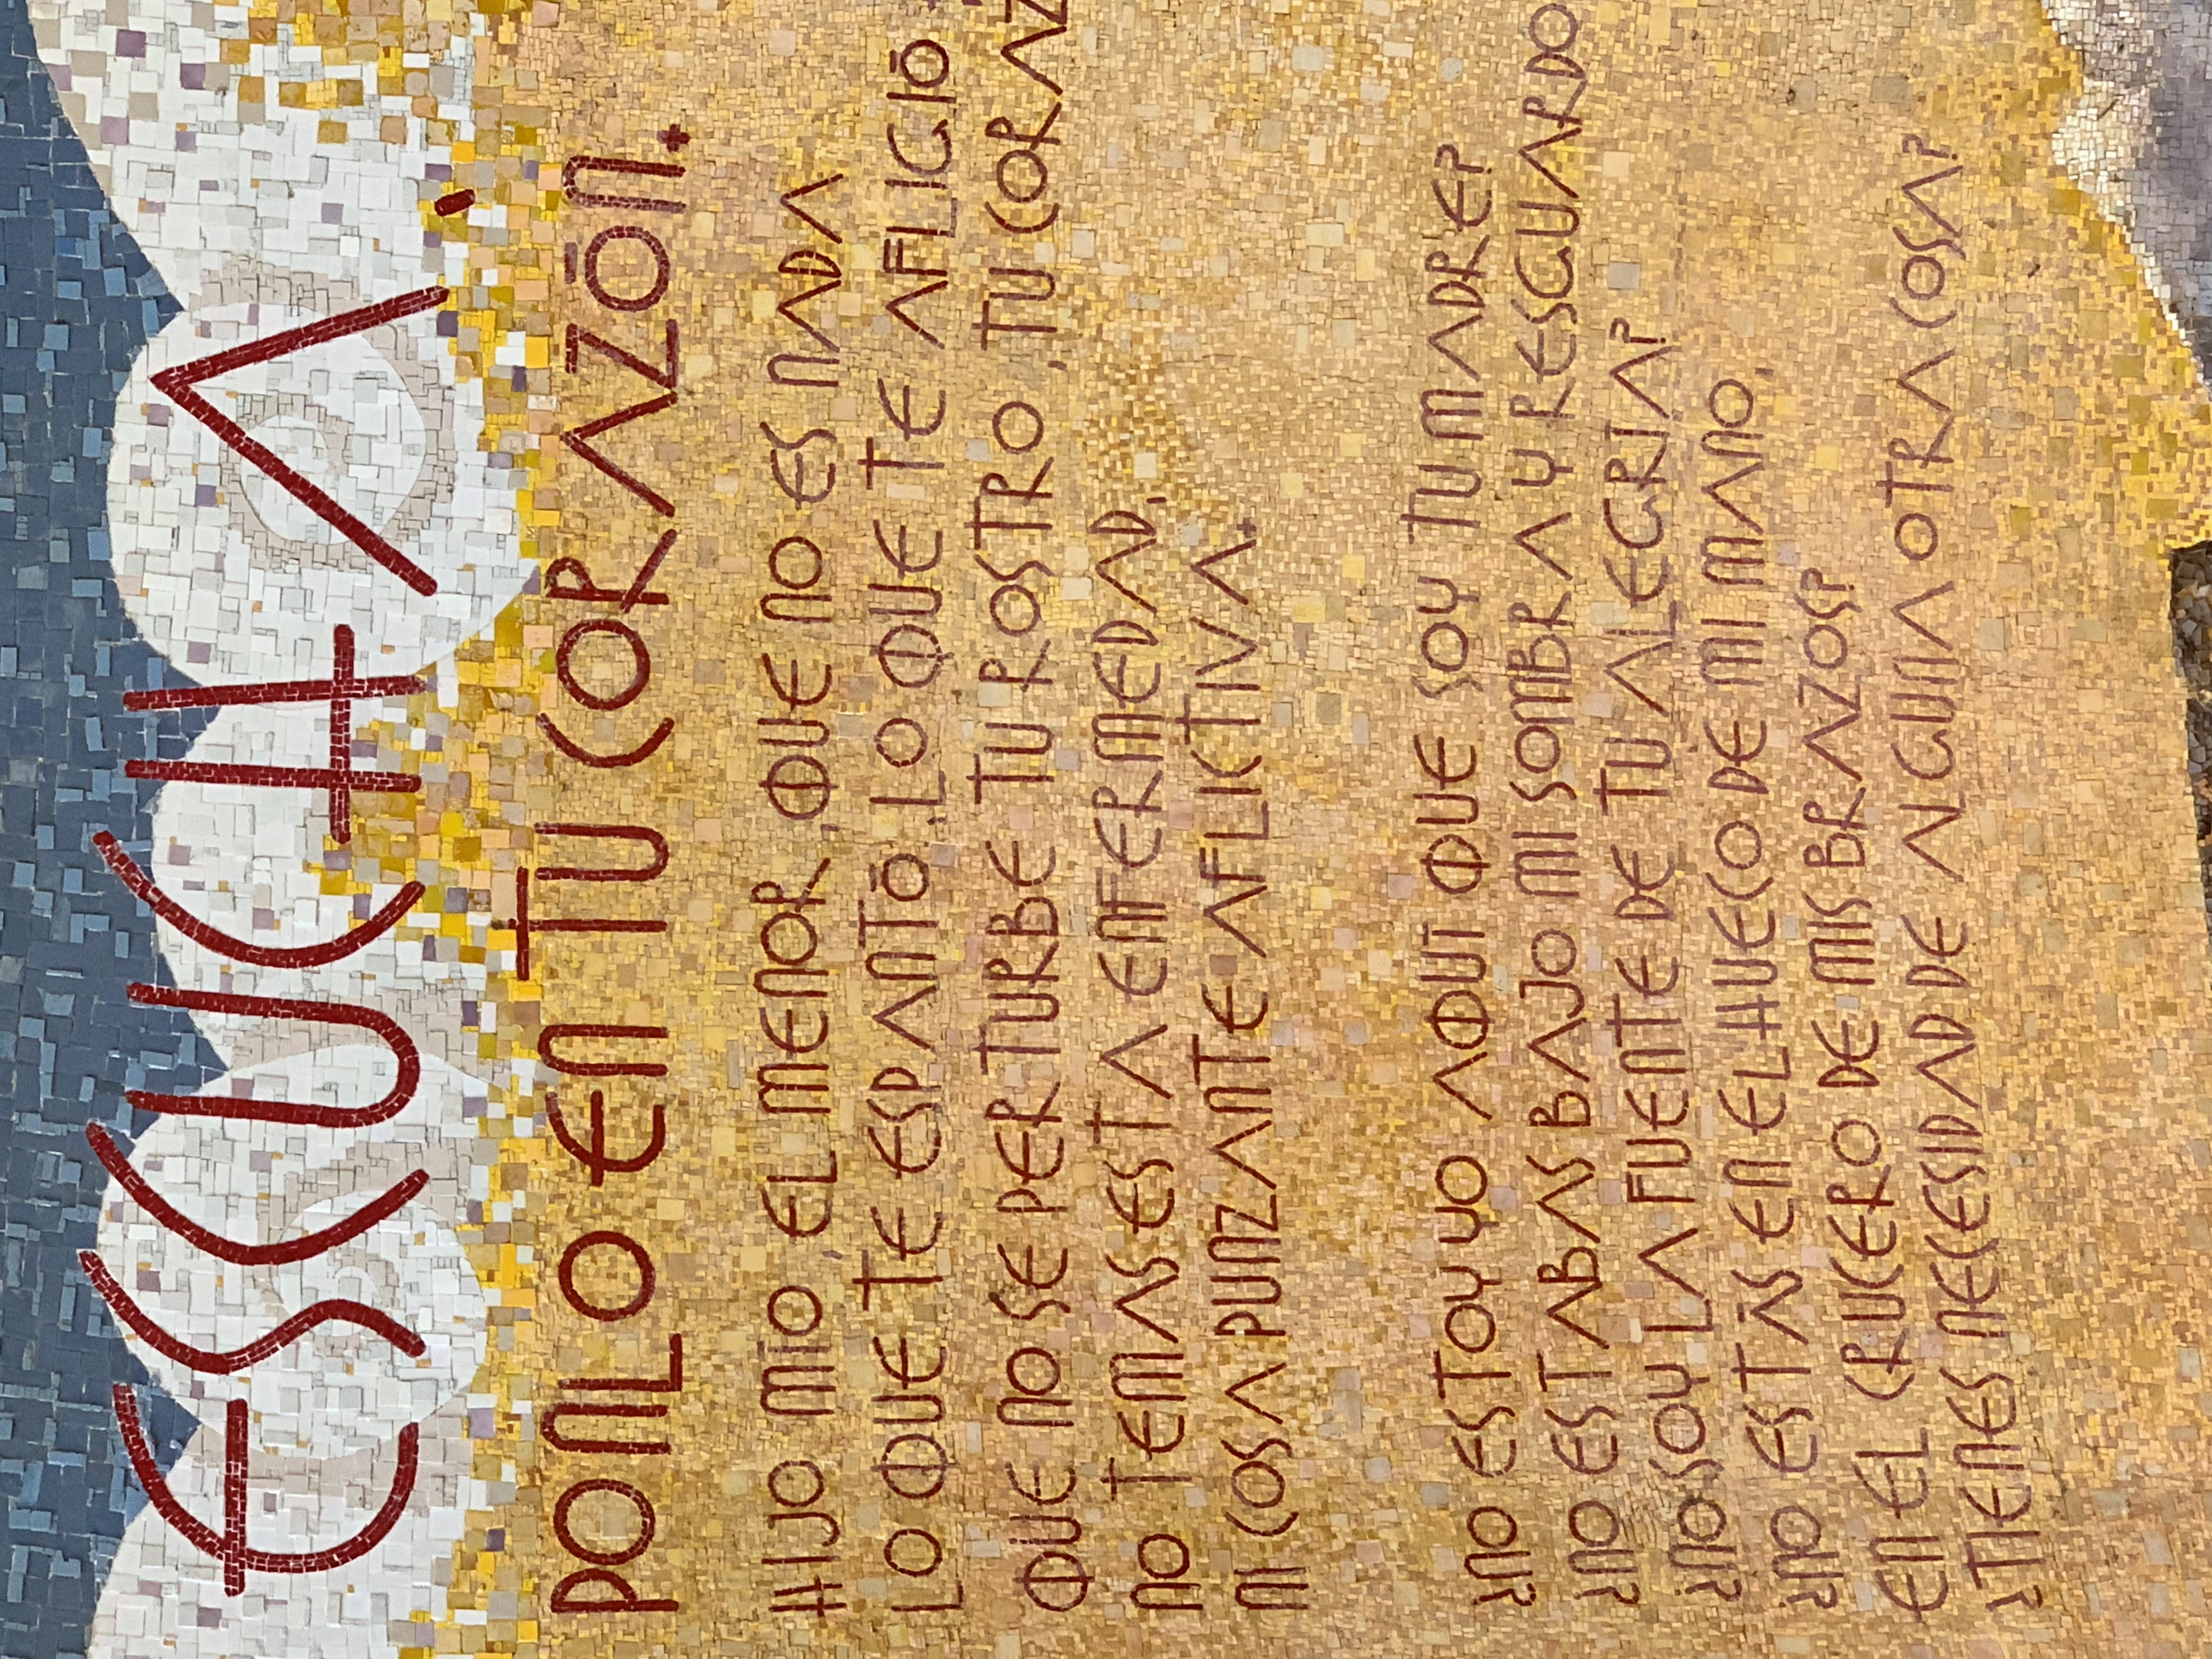 ESCUCHA,
PONLO EN TU CORAZÓN.
HIJO MÍO, EL MENOR, QUE NO ES NADA
LO QUE TE ESPANTÓ, LO QUE TE AFLIGIÓ,
QUE NO SE PERTURBE TU ROSTRO, TU
NO TEMAS ESTA ENFERMEDAD,
NI COSA PUNZANTE AFLICTIVA.
¿NO ESTOY YO AQUÍ QUE SOY TU MADRE?
¿NO ESTABAS BAJO MI SOMBRA Y RESGUARDO
¿NO SOY LA FUENTE DE TU ALEGRÍA?
¿NO ESTÁS EN EL HUECO DE MI MANO,
EN EL CRUCERO DE MIS BRAZOS?
¿TIENES NECESIDAD DE ALGUNA OTRA COSA?